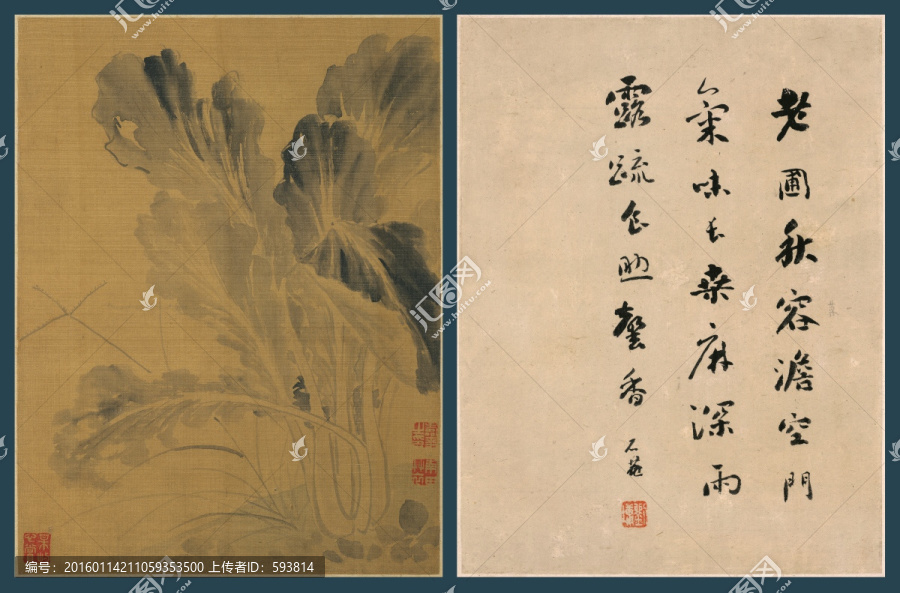 老圃秋容澹空門
氣味長桑麻深雨
露疏食馨香
石菴
汇图网
编号：20160114211059353500 上传者ID：593814